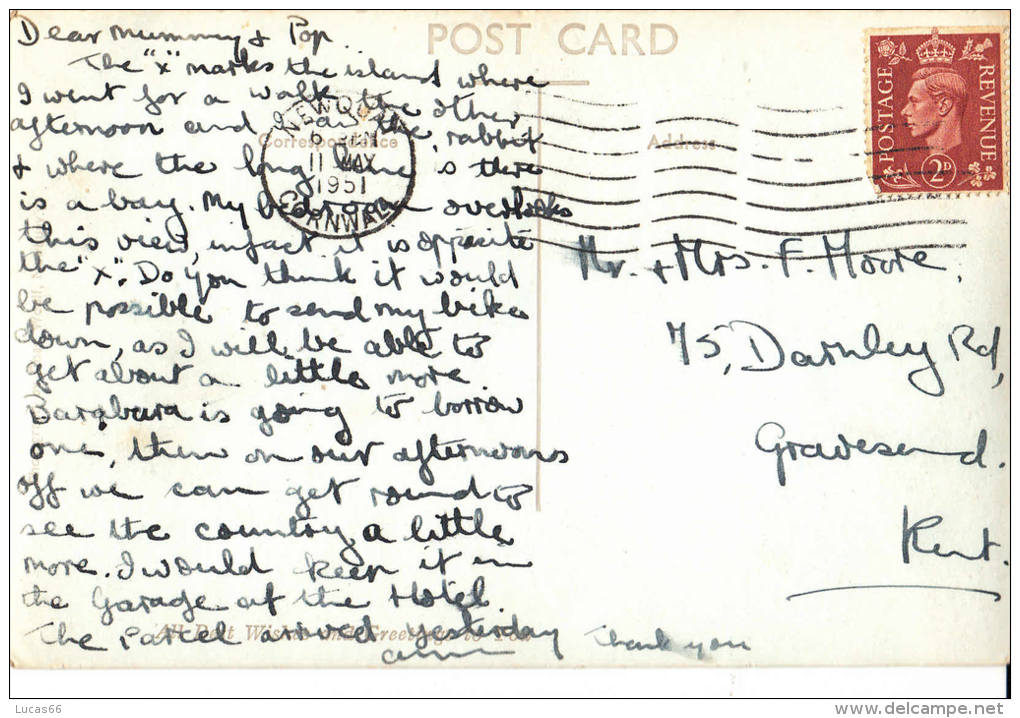 POST CARD
Correspondence
Address
Dear Mummy & Pop..
The "x" marks the island where
I went for a walk the other
afternoon and saw the rabbit
& where the long line is there
is a bay. My bedroom overlooks
this view, infact it is opposite
the "x". Do you think it would
be possible to send my bike
down, as I will be able to
get about a little more.
Barabara is going to borrow
one, then on our afternoons
off we can get round to
see the country a little
more. I would keep it in
the Garage at the Hotel.
The Parcel arrived yesterday Thank you
All Best Wishes and Greetings to You
NEWQUAY
6 PM
11 MAY
1951
CORNWALL
POSTAGE
REVENUE
2D
Mr. & Mrs. F. Moore,
75, Darnley Rd,
Gravesend.
Kent.
Lucas66
www.delcampe.net